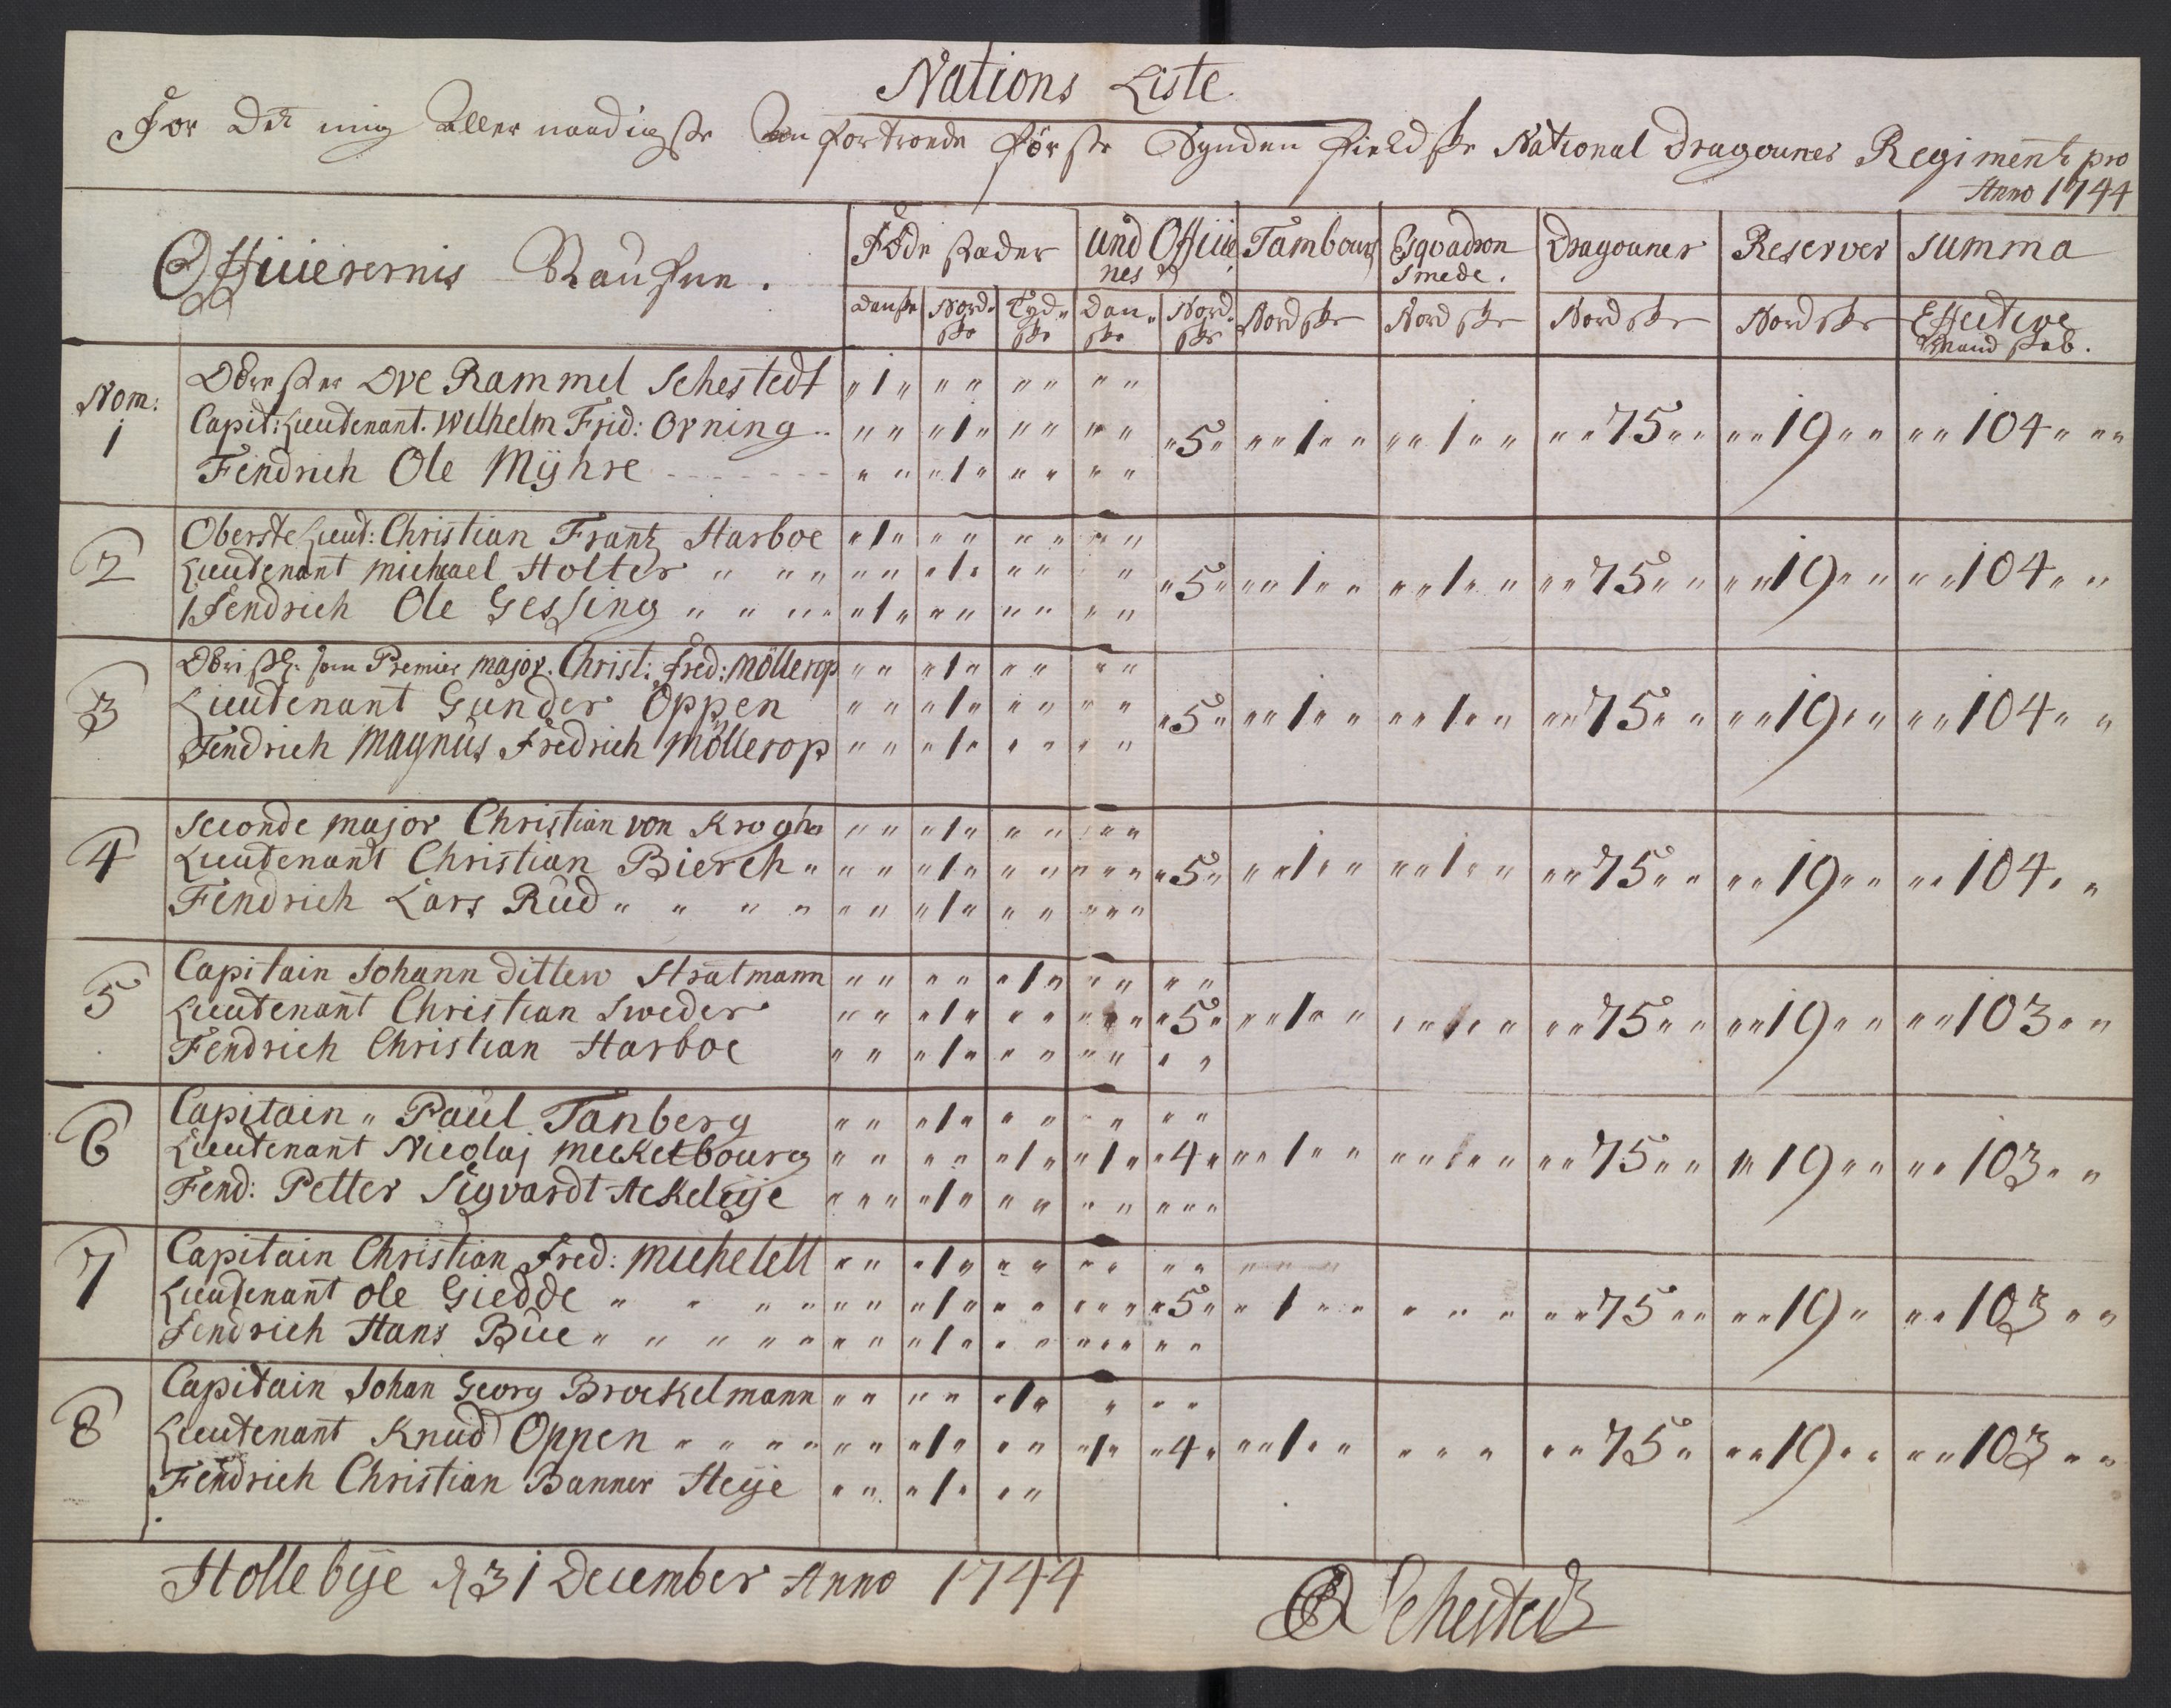 Nations Liste
For det mig Aller naadigste An fortroede förste Synden fieldske National Dragouner Regiment pro
Anno 1744
Officierernis Naufne.
Föde stæder
und Officie
nes
Tambours
Esqvadron
Smede.
Dragouner
Reserver
Summa
Danske
Nord-
ske
Tyd-
ske
Dan-
ske
Nord-
ske
Nordske
Nordske
Nordske
Nordske
Effective
Mandskab.
Nom:
1
Obrester Ove Rammel Sehestedt „1„ „ „ „ „ „ „
Capit: Lieutenant. Wilhelm Frid: Orning .. „ „ „1„ „ „ „ „ „5„ „„1„„ „„1„„ „„75„„ „„19„„ „„104„„„
Fendrich Ole Mÿhre - - - - - „ „ „1„ „ „ „ „
2
Oberste Lieut: Christian Frantz Harboe „1„ „ „ „ „ „ „
Lieutenant Michael Holter „ „ „ „ „ „1„ „ „ „ „5„ „„1„„ „„1„„ „„75„„ „„19„„ „„104„„
Fendrich Ole Gessing „ „ „ „ „1„ „ „ „ „ „ „
3
Obristl: som Premier Major. Christ: Fred: Möllerop „ „ „1„ „ „ „ „
Lieutenant Gunder Oppen „ „ „1„ „ „ „ „ „5„ „„1„„ „„1„„ „„75„„ „„19„„ „„104„„
Fendrich Magnus Fredrich Möllerop „ „ „1„ „ „ „ „
4
Seconde Major Christian von Krogh „ „ „1„ „ „ „ „ „
Lieutenant Christian Bierch „ „ „ „1„ „ „ „ „ „ „5„ „„1„„ „„1„„ „„75„„ „„19„„ „„104„„
Fendrich Lars Rud „ „ „ „ „ „ „1„ „ „ „ „ „
5
Capitain Johann Ditlew Stratmann „ „ „ „ „1„ „ „ „ „
Lieutenant Christian Sweder „ „ „1„ „ „ „ „ „ „5„ „„1„„ „„1„„ „„75„„ „„19„„ „„103„„
Fendrich Christian Harboe „ „ „1„ „ „ „ „ „ „
6
Capitain „ Paul Tanberg „ „ „1„ „ „ „ „ „ „
Lieutenant Nicolaj Meckelbourg „ „ „ „ „1„ „1„ „4„ „„1„„ „„1„„ „„75„„ „„19„„ „„103„„
Fend: Petter Sigvardt Ackeleije „ „ „ „1„ „ „ „ „ „ „ „
7
Capitain Christian Fred: Michelett „ „ „1„ „ „ „ „ „ „ „ „ „
Lieutenant Ole Giedde „ „ „ „ „ „ „1„ „ „ „ „ „ „5„ „1„„ „ „ „ „„75„„ „„19„ „„103„„
Fendrich Hans Bue „ „ „ „ „ „ „ „1„ „ „ „ „ „ „ „
8
Capitain Johan Georg Brockelmann „ „ „ „ „1„ „ „ „
Lieutenant Knud Oppen „ „ „ „ „ „ „1„ „ „ „1„ „4„ „„1„„ „ „ „ „„75„ „„19„„ „„103„„
Fendrich Christian Banner Heije „ „ „1„ „ „
Hollebÿe d 31 December Anno 1744
OR Sehestedt